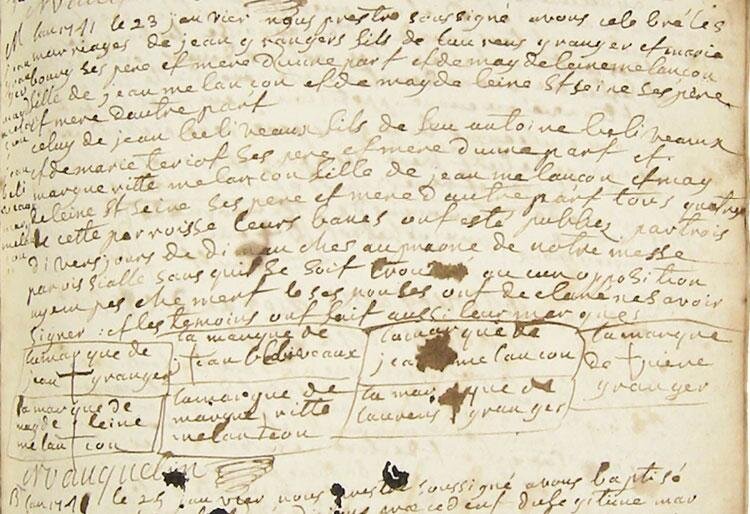 lan 1741 le 23 janvier nous prestre soussigné avons celebré les
marriages de jean grangers fils de laurens granger et marie
bourg ses pere et mere dunne part et de magdeleine melancon
fille de jean melancon et de magdeleine St seine ses pere
et mere dautre part
celuy de jean beliveaux fils de feu antoine beliveaux
et de marie teriot ses pere et mere dunne part et
margueritte melancon fille de jean melancon et mag
deleine St seine ses pere et mere dautre part tous quatre
de cette parroisse leurs bancs ont esté publiez par trois
divers jours de dimanches au prosne de notre messe
paroissialle sans quil se soit trouvé aucun opposition
ny empeschement les espouses ont declaré ne savoir
signer : et les temoins ont fait aussi leur marques
la marque de
jean granger
la marque de
jean beliveaux
la marque de
jean melancon
la marque
de piere
granger
la marque de
magdeleine
melancon
la marque de
margueritte
melancon
la marque de
laurens granger
Nvauquelin
lan 1741 le 25 janvier nous prestre soussigné avons baptisé
du legitime mar